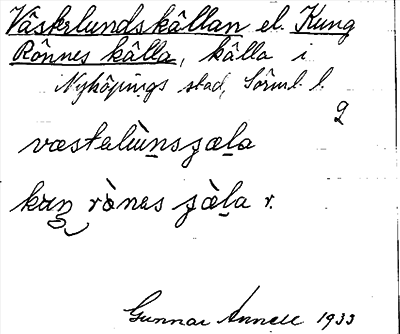 Väskelundskällan el. Kung
Rönnes källa, källa i
Nyköpings stad, Sörml. l.
væstelùnsʒæla
kuŋ rònes ʒæ̀la r.
Gunnar Annell 1933